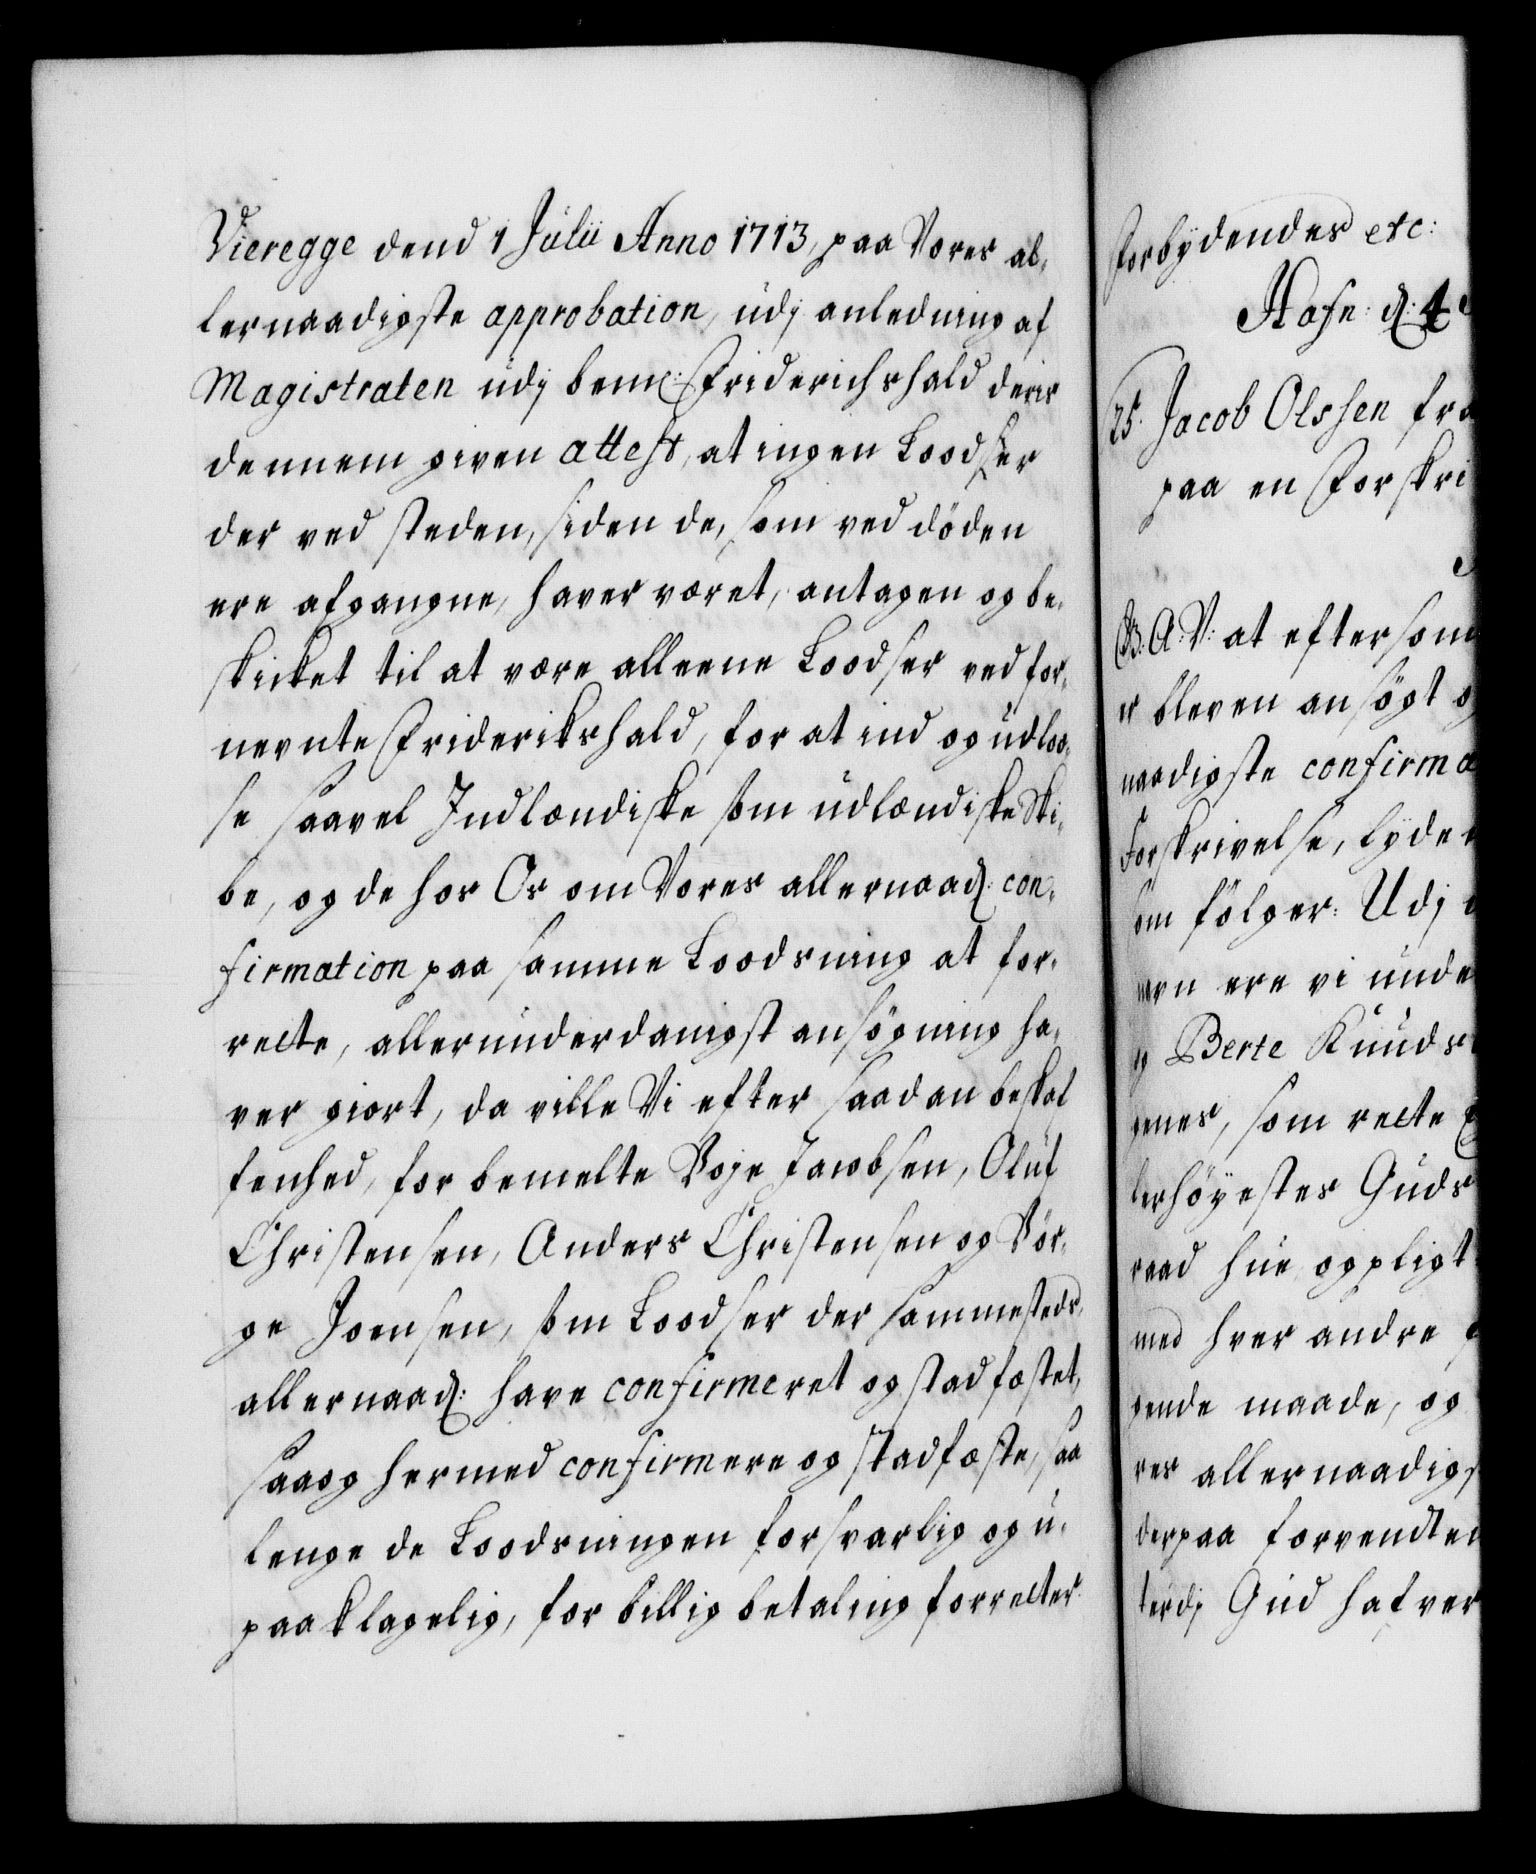 Vieregge dend 1 Julii Anno 1713, paa Vores al-
lernaadigste approbation, udj anledning af
Magistraten udj bem: Friderichshald deris
dennem given attest, at ingen Loodser
der ved steden, siden de, som ved döden
ere afgangne, haver været, antagen og be-
skicket til at være alleene Loodser ved for-
nevnte Friderikshald, for at ind og udloo-
se saavel Indlændiske som udlændiske Ski-
be, og de hos Os om Vores allernaad: con-
firmation paa samme Loodsning at for-
rette, allerunderdanigst ansögning ha-
ver giort, da ville Vi efter saadan beskaf
fenhed, forbemelte Boje Jacobsen, Oluf
Christensen, Anders Christensen og Bör-
ge Joensen, som Loodser der sammesteds,
allernaad: have confirmeret og stadfæstet,
saa og hermed confirmere og stadfæste, saa
lenge de Loodsningen forsvarlig og u-
paaklagelig, for billig betaling forretter.
Forbydendes etc:
Hafn: d: 4
25. Jacob Olssen fra
paa en Forskri
G. A: V: at eftersom
er bleven ansögt og
naadigste confirma
Forskrivelse, lyden
som fölger: Udj
navn ere vi unde
og Berte Knuds
genes, som rette E
lerhöyestes Guds
raad hue og pligt
med hver andre
gende maade, og
res allernaadigs
derpaa forvendten
terdj Gud hafver